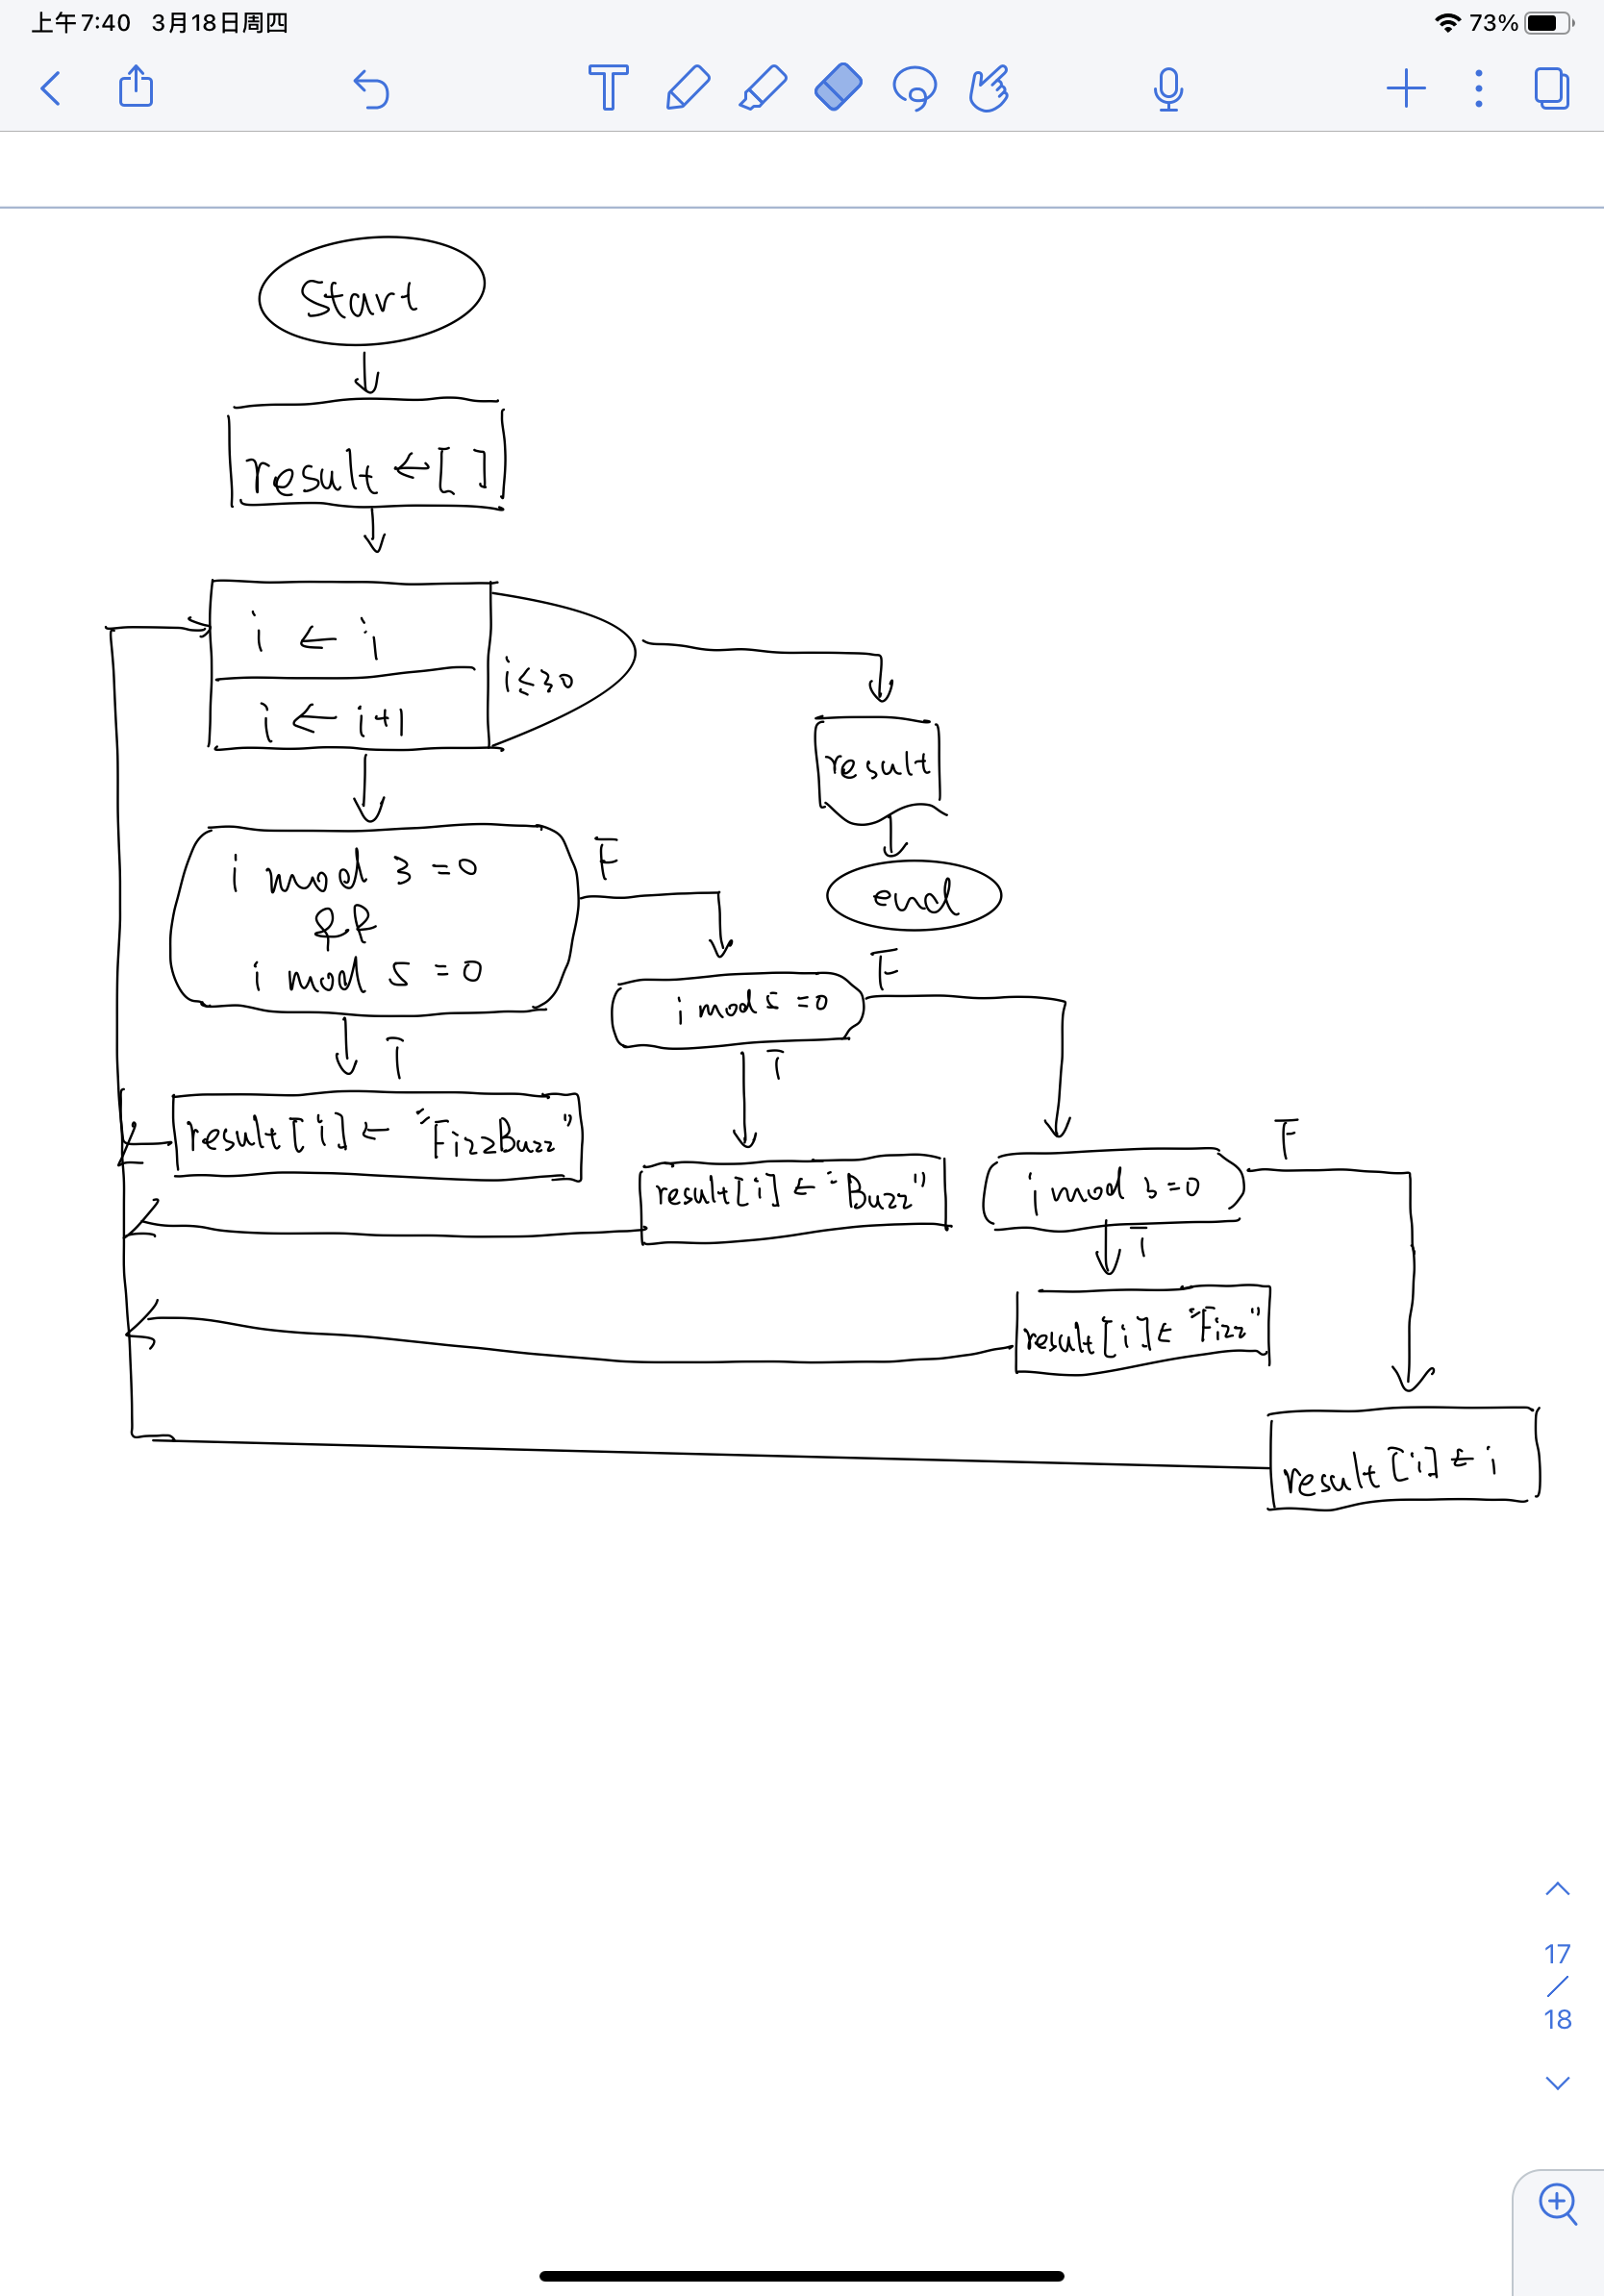 上午7:40 3月18日周四
73%
T
Start
result ← [ ]
i ← i
i ≤ 30
i ← i+1
result
end
i mod 3 = 0
&&
i mod 5 = 0
F
T
i mod 5 = 0
F
T
result[i] ← "FizzBuzz"
result[i] ← "Buzz"
i mod 3 = 0
F
T
result[i] ← "Fizz"
result[i] ← i
17
/
18